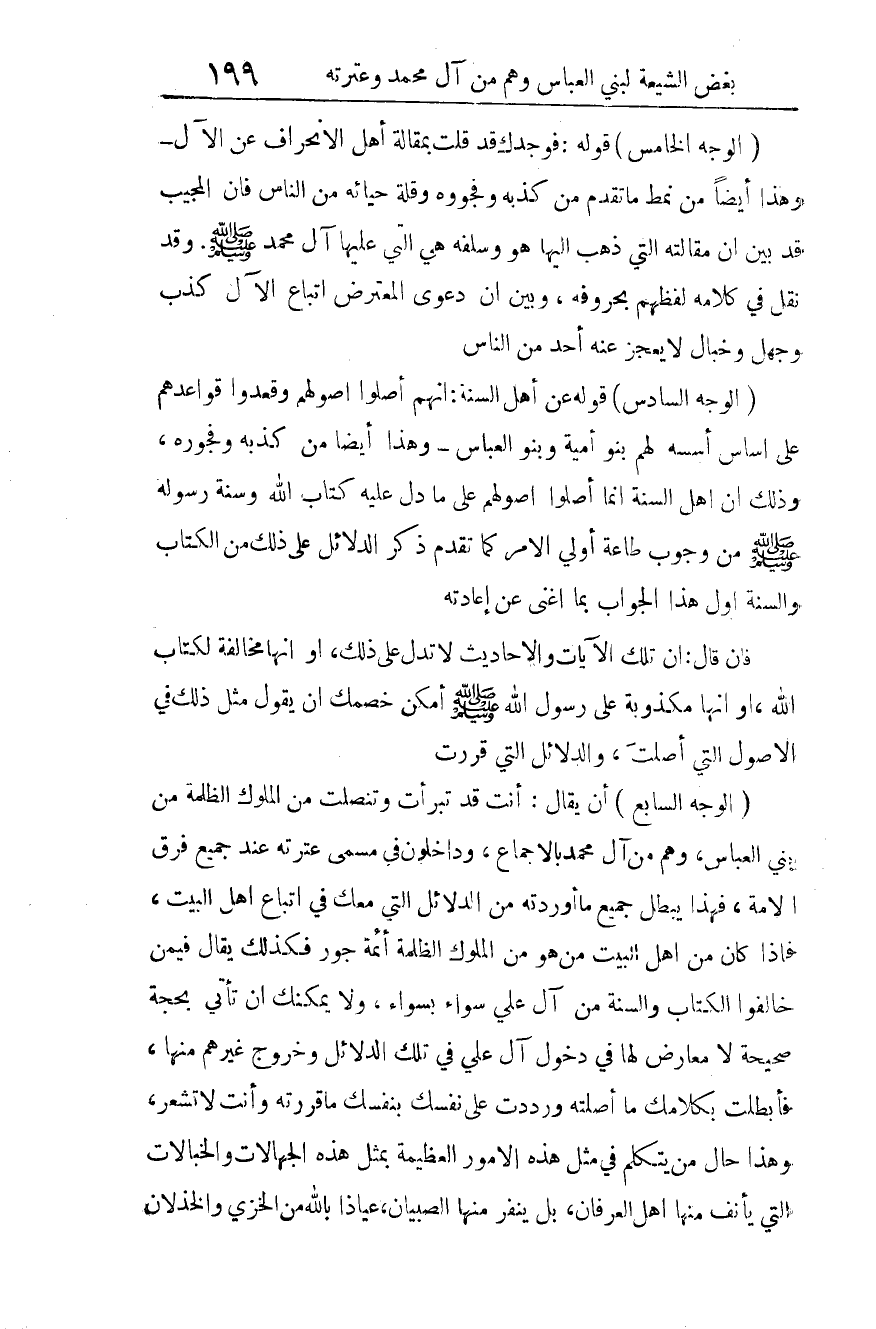 بغض الشيعة لبني العباس وهم من آل محمد وعترته ١٩٩
( الوجه الخامس ) قوله : فوجدك قد قلت بمقالة أهل الانحراف عن الآل ــ
وهذا أيضاً من نمط ماتقدم من كذبه وفجووه وقلة حيائه من الناس فان المجيب
قد بين ان مقالته التي ذهب اليها هو وسلفه هي التي عليها آل محمد ﷺ. وقد
نقل في كلامه لفظهم بحروفه ، وبين ان دعوى المعترض اتباع الآل كذب
وجهل وخبال لايعجز عنه أحد من الناس
( الوجه السادس ) قوله عن أهل السنة : انهم أصلوا اصولهم وقعدوا قواعدهم
على اساس أسسه لهم بنو أمية وبنو العباس ــ وهذا أيضا من كذبه وفجوره ،
وذلك ان اهل السنة انما أصلوا اصولهم على ما دل عليه كتاب الله وسنة رسوله
ﷺ من وجوب طاعة أولي الامر كما تقدم ذكر الدلائل على ذلك من الكتاب
والسنة اول هذا الجواب بما اغنى عن إعادته
فان قال : ان تلك الآيات والاحاديث لاتدل على ذلك، او انها مخالفة لكتاب
الله ،او انها مكذوبة على رسول الله ﷺ أمكن خصمك ان يقول مثل ذلك في
الاصول التي أصلتَ ، والدلائل التي قررت
( الوجه السابع ) أن يقال : أنت قد تبرأت وتنصلت من الملوك الظلمة من
بني العباس، وهم من آل محمد بالاجماع ، وداخلون في مسمى عترته عند جميع فرق
الامة ، فهذا يبطل جميع ماأوردته من الدلائل التي معك في اتباع اهل البيت ،
فاذا كان من اهل البيت من هو من الملوك الظلمة أئمة جور فكذلك يقال فيمن
خالفوا الكتاب والسنة من آل علي سواء بسواء ، ولا يمكنك ان تأتي بحجة
صحيحة لا معارض لها في دخول آل علي في تلك الدلائل وخروج غيرهم منها ،
فأبطلت بكلامك ما أصلته ورددت على نفسك بنفسك ماقررته وأنت لاتشعر،
وهذا حال من يتكلم في مثل هذه الامور العظيمة بمثل هذه الجهالات والخبالات
التي يأنف منها اهل العرفان، بل ينفر منها الصبيان،عياذا بالله من الخزي والخذلان